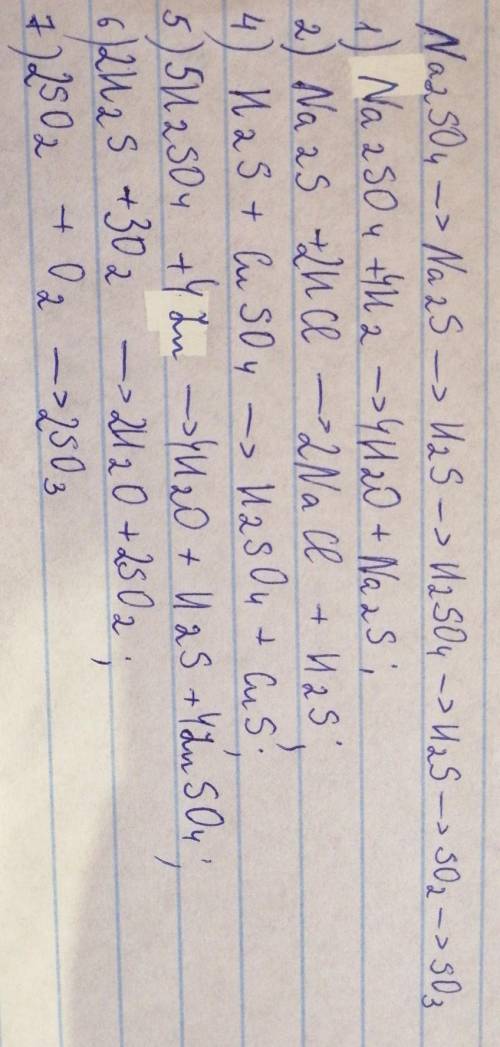 Na2SO4 → Na2S → H2S → H2SO4 → H2S → SO2 → SO3
1) Na2SO4 + 4H2 → 4H2O + Na2S;
2) Na2S + 2HCl → 2NaCl + H2S;
4) H2S + CuSO4 → H2SO4 + CuS;
5) 5H2SO4 + 4Zn → 4H2O + H2S + 4ZnSO4;
6) 2H2S + 3O2 → 2H2O + 2SO2;
7) 2SO2 + O2 → 2SO3